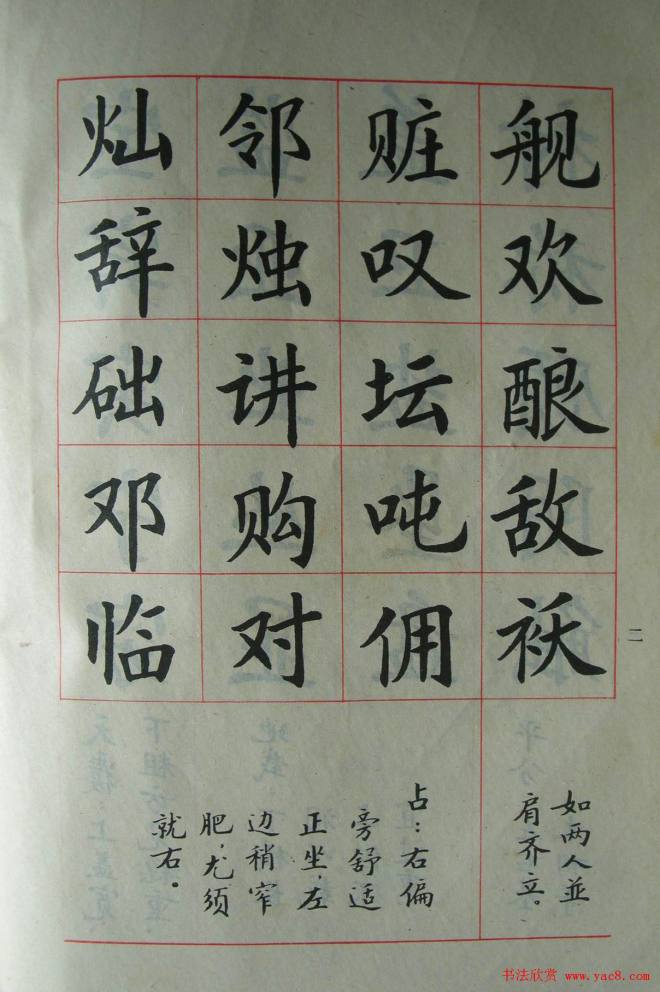 舰欢酿敌袄
如两人並
肩齐立。
赃叹坛吨佣
邻烛讲购对
灿辞础邓临
占：右偏
旁舒适
正坐，左
边稍窄
肥，尤须
就右。
二
书法欣赏 www.yac8.com